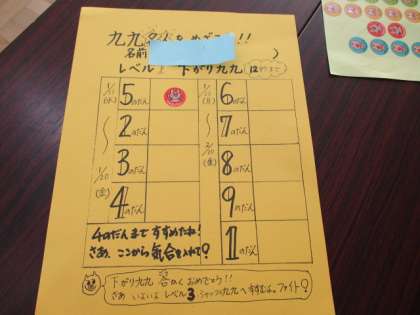 九九名人をめざそう!!
名前 )
レベル 下がり九九
5のだん
6のだん
2のだん
7のだん
3のだん
8のだん
4のだん
9のだん
4のだんまですすめたね!
さあ、ここから気合を入れて?
1のだん
下がり九九 おめでとう!!
さあ いよいよ レベル3 九九へ ファイト?